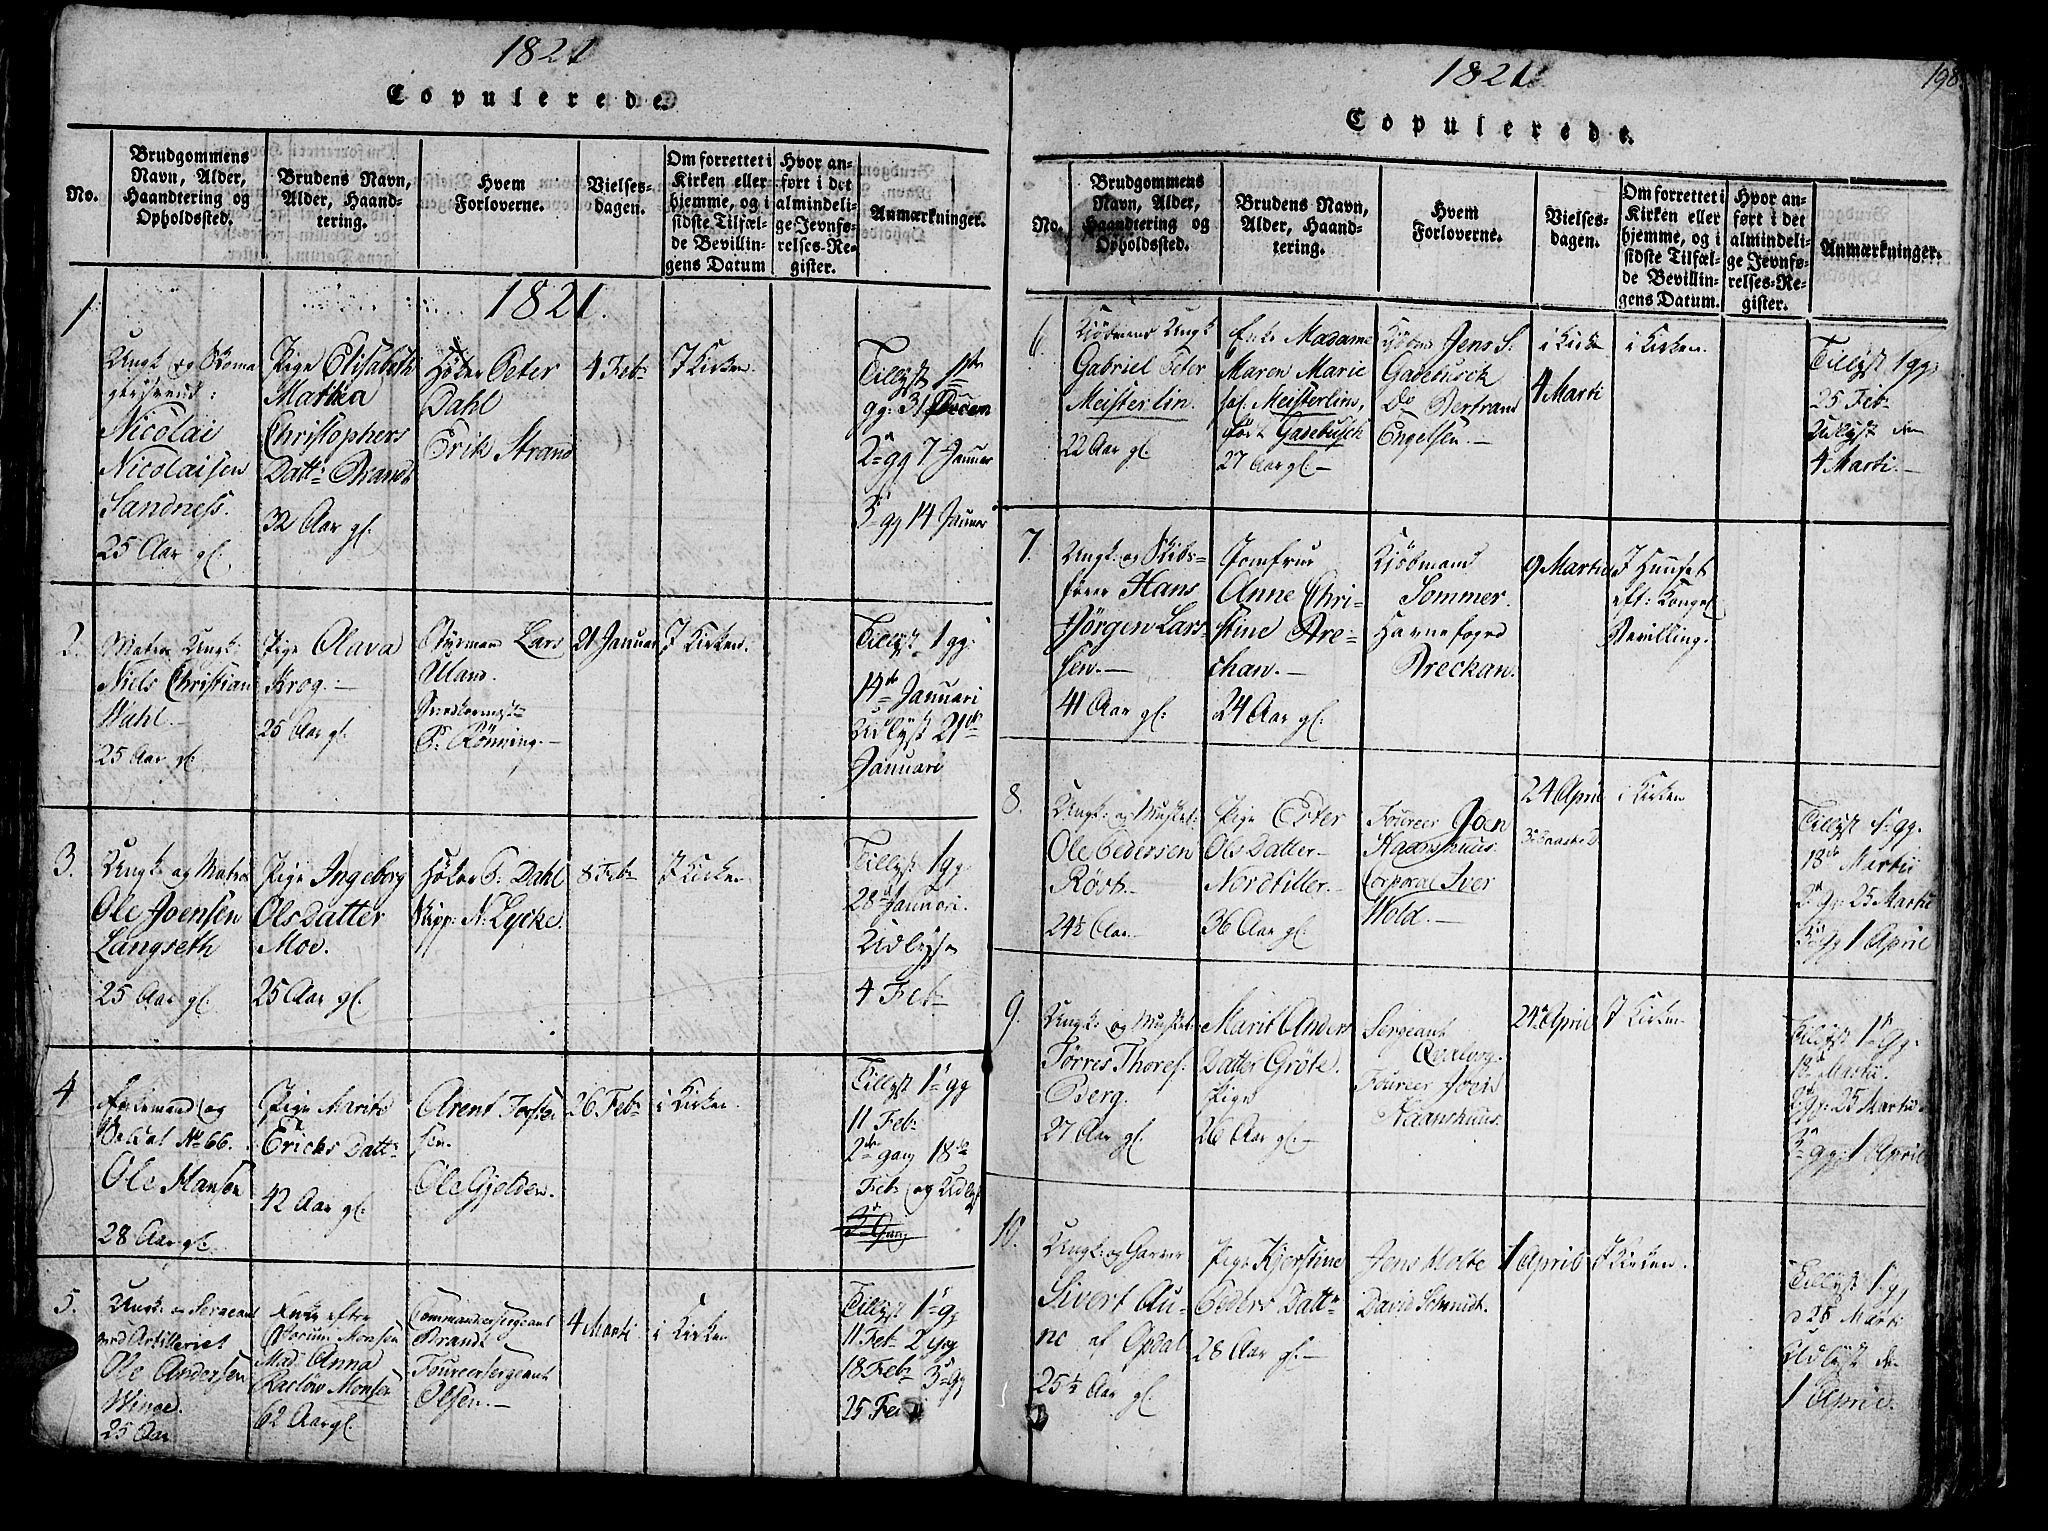 1821
Copulerede.
No.
Brudgommens
Navn, Alder,
Haandtering og
Opholdssted.
Brudens Navn,
Alder, Haand-
tering.
Hvem
Forloverne.
Vielses-
dagen.
Om forrettet i
Kirken eller
hjemme, og i
sidste Tilfæl-
de Bevillin-
gens Datum
Hvor an-
ført i det
almindeli-
ge Jevnfø-
relses-Re-
gister.
Anmærkninger.
1821.
1
Ungk og
Nicolai
Nicolaisen
Sandness.
25 Aar gl.
Pige Elisabeth
Mathea
Christophers
Dattr Brandt
32 Aar gl.
Høker Peter
Dahl
Erik Strand
4 Febr
I Kirken
Tillyst 1ste
gg: 31 Decem
2 gg 7 Januar
3 gg 14 Januar
2.
Matros Ungk:
Niels Christian
Wahl.
25 Aar gl.
Pige Olava
Krog.
25 Aar gl.
Styrmand Lars
Uland.
Rönning.
21 Januar
I Kirken.
Tillyst 1 gg:
14de Januari
Udlyst 21de
Januari
3.
Ungk: og Matros
Ole Joensen
Langseth
25 Aar gl.
Pige Ingeborg
Olsdatter
Moe.
25 Aar gl.
Høker P: Dahl
Skipp: N: Lycke.
8 Febr
I Kirken
Tillyst 1 gg
28 Januari.
Udlyst
4 Febr
4
Enkemand og
Soldat No 66.
Ole Hansen
28 Aar gl.
Pige Marith
Ericks Dattr
42 Aar gl.
Arent
sen.
Ole Gjelden.
26 Febr
i Kirken.
Tillyst 1 gg
11 Febr
2den gang 18de
Febr og Udlyst
3 Gang
5.
Ungk: og Sergeant
ved Artilleriet
Ole Andersen
Winge.
25 Aar
Enke efter
Jocum Monsen
Mad. Anna
Raclöw Monsen
62 Aar gl.
Commandeersergeant
Brandt
Foureersergeant
Olsen.
4 Marti
i Kirken
Tillyst 1 gg
11 Febr 2 gg
18 Febr 3 gg
25 Feb
198
1821
Copulerede.
No.
Brudgommens
Navn, Alder,
Haandtering og
Opholdssted.
Brudens Navn,
Alder, Haand-
tering.
Hvem
Forloverne.
Vielses-
dagen.
Om forrettet i
Kirken eller
hjemme, og i
sidste Tilfæl-
de Bevillin-
gens Datum.
Hvor an-
ført i det
almindeli-
ge Jevnfø-
relses-Re-
gister.
Anmærkninger.
6.
Kjöbmand Ungk
Gabriel Peter
Meisterlin.
22 Aar gl.
Enke Madame
Maren Marie
sal. Meisterlin,
født Gadebusch
27 Aar gl.
Kjöbm Jens S.
Gadebusch
Do Bertrand
Engelsen.
i Kirken
4 Marti
i Kirken.
Tillyst 1 gg
25 Febr
Udlyst den
4 Marti.
7.
Ungk. og Skibs-
fører Hans
Jörgen Lars-
sen.
41 Aar gl:
Jomfrue
Anne Chri-
stine Bre-
chan.
24 Aar gl:
Kjöbmand
Sommer.
Havnefoged
Breckan.
9 Martii
I Huuset
eft: Kongel
Bevilling.
8.
Ungk: og Musket:
Ole Pedersen
Röst.
24½ Aar
Pige Ester
Olsdatter
Nordtiller.
36 Aar gl.
Foureer Joen
Haanshuus.
Corporal Iver
Wold.
24 April
3 Paaske D.
i Kirken
Tillyst 1 gg.
18de Martii
2 gg. 25 Martii
3 gg 1 April
9.
Ungk: og Musket:
Törres Thores.
Berg.
27 Aar gl.
Marit Anders
Datter Gröte.
Pige
26 Aar gl.
Sergeant
Qvalvog.
Foureer Joen
Haanshuus.
24 April
I Kirken
Tillyst 1 Gg.
18 Martii.
2 gg. 25 Martii
3 gg 1 April
10.
Ungk: og Garver
Sivert Au-
ne af Opdal
25½ Aar gl.
Pige Kjerstine
Peders Dattr
28 Aar gl.
Jens Holte
David Schmidt.
1 April
I Kirken.
Tillyst 1 gg
d 25 Marti
Udlyst den
1 April.